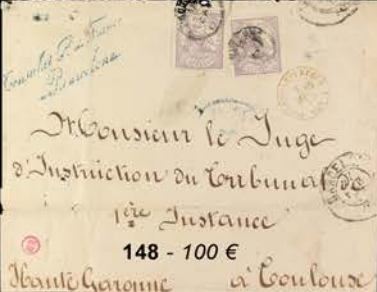 Consulat De France
Barcelona
A Monsieur le Juge
d'Instruction du Tribunal de
1ère Instance
148 - 100 €
Haute Garonne à Toulouse